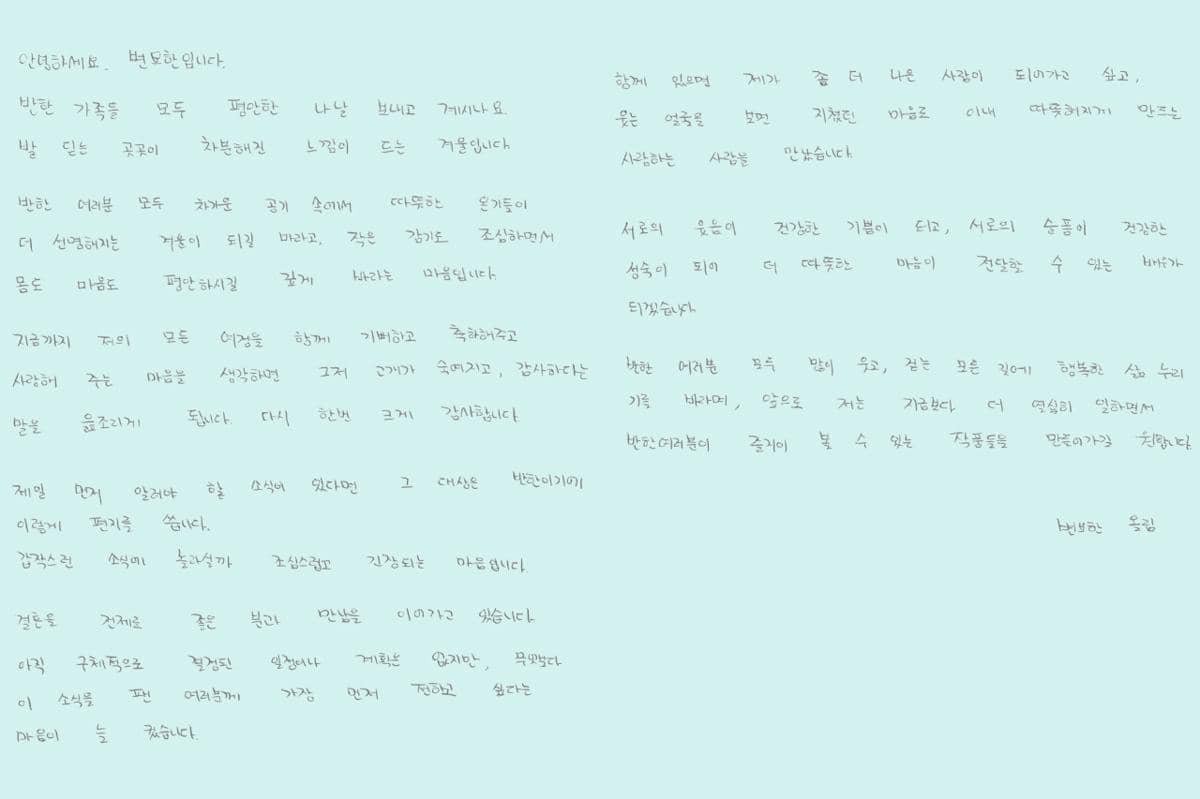 안녕하세요. 변요한입니다.
반한 가족들 모두 평안한 나날 보내고 계시나요.
발 딛는 곳곳이 차분해진 느낌이 드는 겨울입니다
반한 여러분 모두 차가운 공기 속에서 따뜻한 온기들이
더 선명해지는 겨울이 되길 바라고, 작은 감기도 조심하면서
몸도 마음도 평안하시길 깊게 바라는 마음입니다.
지금까지 저의 모든 여정을 함께 기뻐하고 축하해주고
사랑해 주는 마음을 생각하면 그저 고개가 숙여지고, 감사하다는
말을 읊조리게 됩니다. 다시 한번 크게 감사합니다.
제일 먼저 알려야 할 소식이 있다면 그 대상은 반한이기에
이렇게 편지를 씁니다.
갑작스런 소식에 놀라실까 조심스럽고 긴장되는 마음입니다.
결혼을 전제로 좋은 분과 만남을 이어가고 있습니다.
아직 구체적으로 결정된 일정이나 계획은 없지만, 무엇보다
이 소식을 팬 여러분께 가장 먼저 전하고 싶다는
마음이 늘 컸습니다.
함께 있으면 제가 좀 더 나은 사람이 되어가고 싶고,
웃는 얼굴을 보면 지쳤던 마음도 이내 따뜻해지게 만드는
사랑하는 사람을 만났습니다.
서로의 웃음이 건강한 기쁨이 되고, 서로의 슬픔이 건강한
성숙이 되어 더 따뜻한 마음이 전달할 수 있는 배우가
되겠습니다.
반한 여러분 모두 많이 웃고, 걷는 모든 길에 행복한 삶 누리
기를 바라며, 앞으로 저는 지금보다 더 열심히 일하면서
반한여러분이 즐거이 볼 수 있는 작품들을 만들어가길 원합니다.
변요한 올림